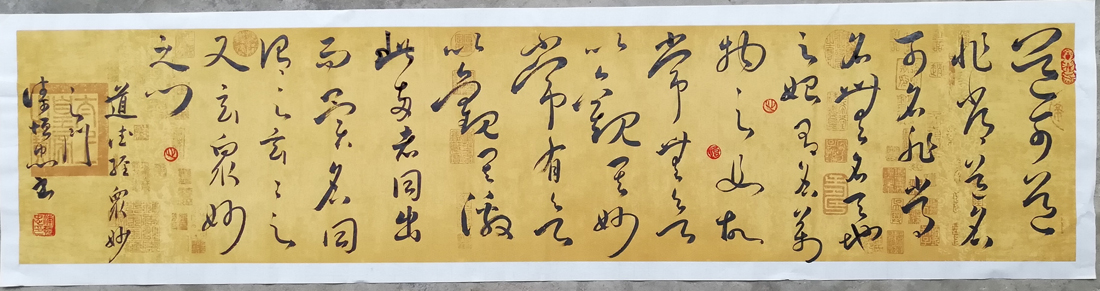 道可道
非常道名
可名非常
名無名天地
之始有名萬
物之母故
常無欲
以觀其妙
常有欲
以觀其徼
此兩者同出
而異名同
謂之玄玄之
又玄眾妙
之門
道德經眾妙
之門
書